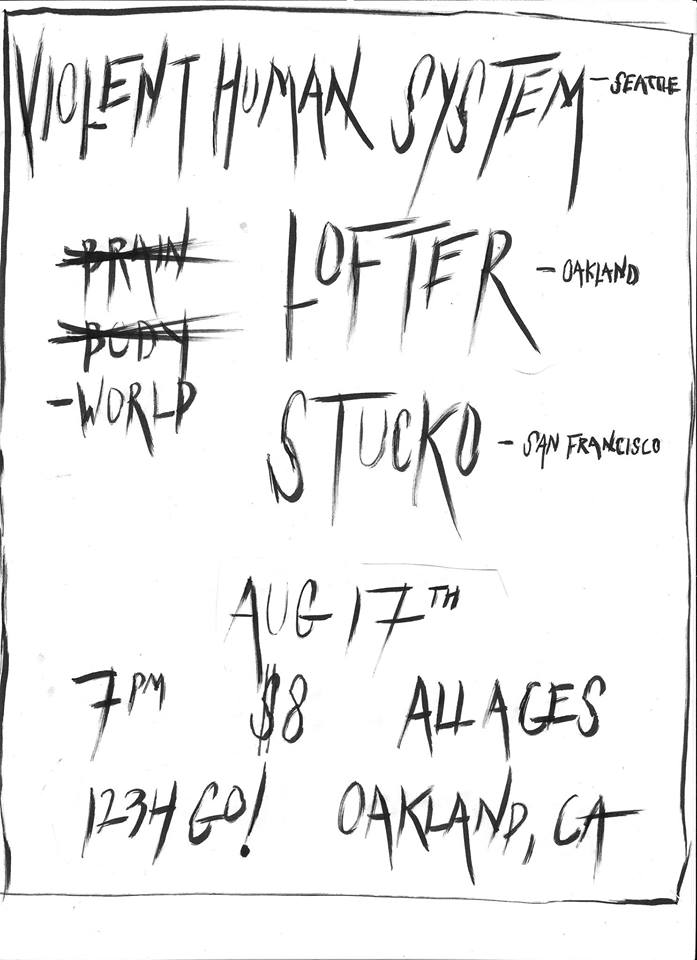 VIOLENT HUMAN SYSTEM - SEATTLE
BRAIN
BODY
- WORLD
LOFTER - OAKLAND
STUCKO - SAN FRANCISCO
AUG 17TH
7PM $8 ALL AGES
1234 GO! OAKLAND, CA